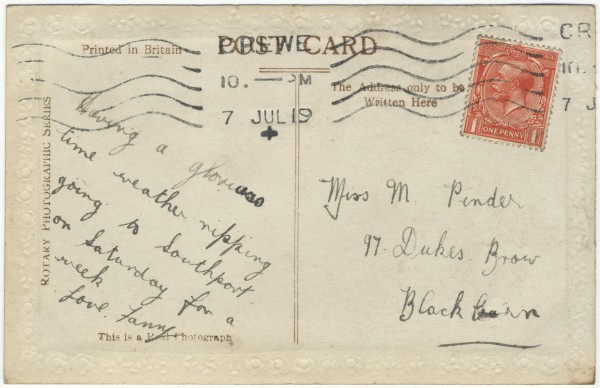 POST CARD
CREWE
Printed in Britain
10. — PM
7 JUL 19
The Address only to be
Written Here
CR
10.
7 J
ONE PENNY
1
1
ROTARY PHOTOGRAPHIC SERIES
Having a glorious
time weather ripping
going to Southport
on Saturday for a
week
Love. Fanny
Miss M. Pinder
97. Dukes Brow
Blackburn
This is a Real Photograph